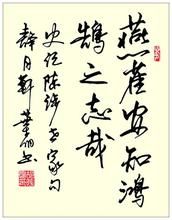 燕雀安知鸿
鹄之志哉
史记陈涉世家句
静月轩